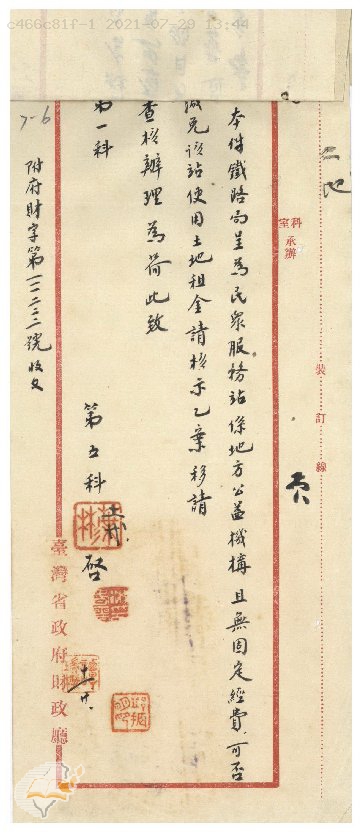 c466c81f-1 2021-07-29 13:44
二地
裝訂線
科室承辦
本件鐵路局呈為民眾服務站係地方公益機構且無固定經費可否
減免該站使用土地租金請核示乙案移請
查核辦理為荷此致
第一科
第五科
啓
附府財字第一二二三三號收文
7-6
臺灣省政府財政廳